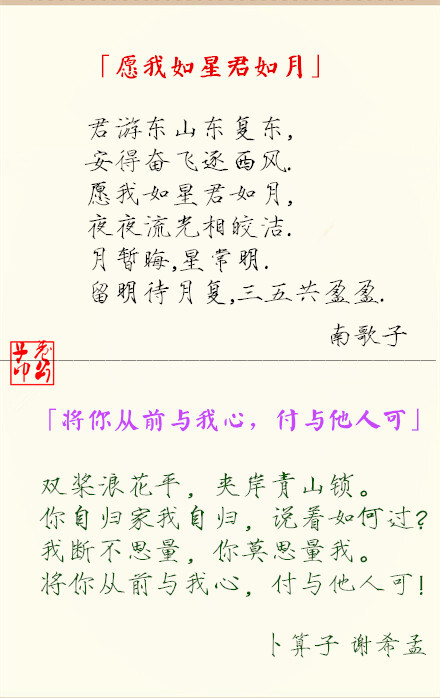 「愿我如星君如月」
君游东山东复东,
安得奋飞逐西风.
愿我如星君如月,
夜夜流光相皎洁.
月暂晦,星常明.
留明待月复,三五共盈盈.
南歌子
「将你从前与我心，付与他人可」
双桨浪花平，夹岸青山锁。
你自归家我自归，说着如何过?
我断不思量，你莫思量我。
将你从前与我心，付与他人可!
卜算子 谢希孟